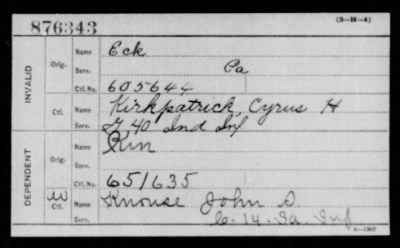 (3-H-4)
876343
INVALID
Orig.
Name Eck
Serv. Pa
Ctf. No. 605644
Ctf.
Name Kirkpatrick, Cyrus H
Serv. G 40 Ind Inf
DEPENDENT
Orig.
Name Rin
Serv.
Ctf. No. 651635
W Ctf.
Name Knouse John D.
Serv. C. 14. Ia. Inf